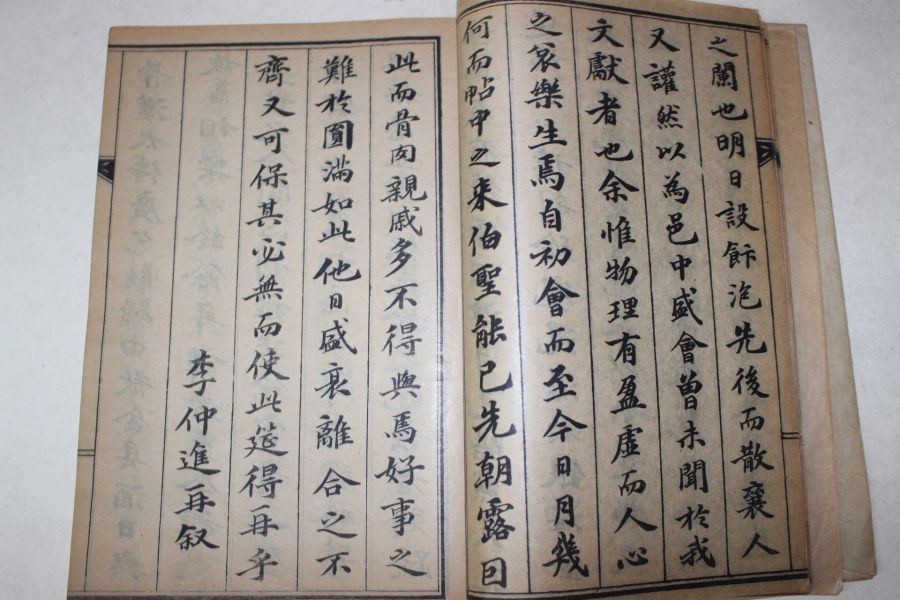 之闌也明日設飰訖先後而散襄人
又讙然以為邑中盛會曾未聞於我
文獻者也余惟物理有盈虛而人心
之哀樂生焉自初會而至今日月幾
何而帖中之来伯聖能已先朝露囙
此而骨肉親戚多不得與焉好事之
難於圓滿如此他日盛衰離合之不
齊又可保其必無而使此筵得再乎
李仲進再叙